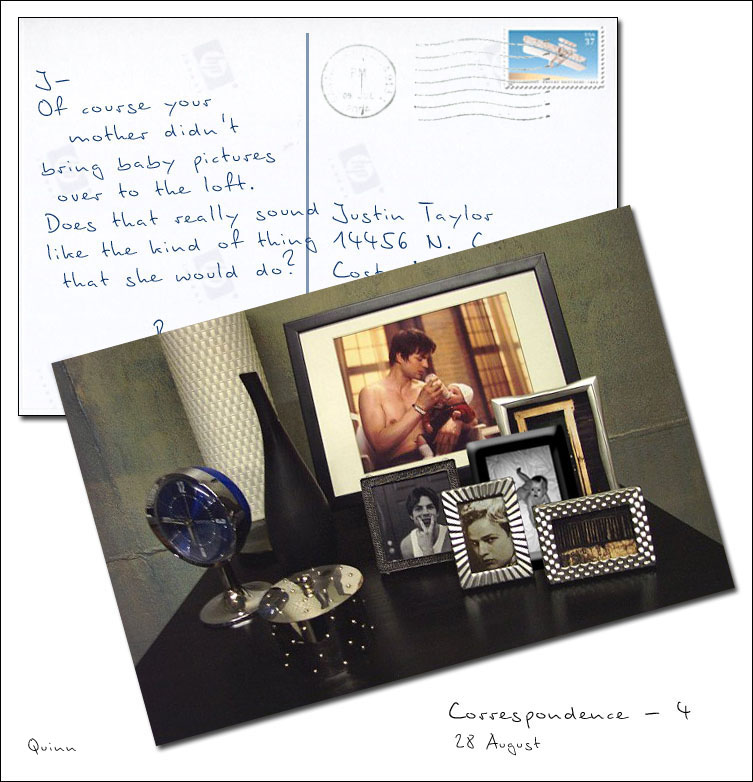 J–
Of course your
mother didn't
bring baby pictures
over to the loft.
Does that really sound
like the kind of thing
that she would do?
Justin Taylor
14456 N.
USA
37
Correspondence – 4
28 August
Quinn